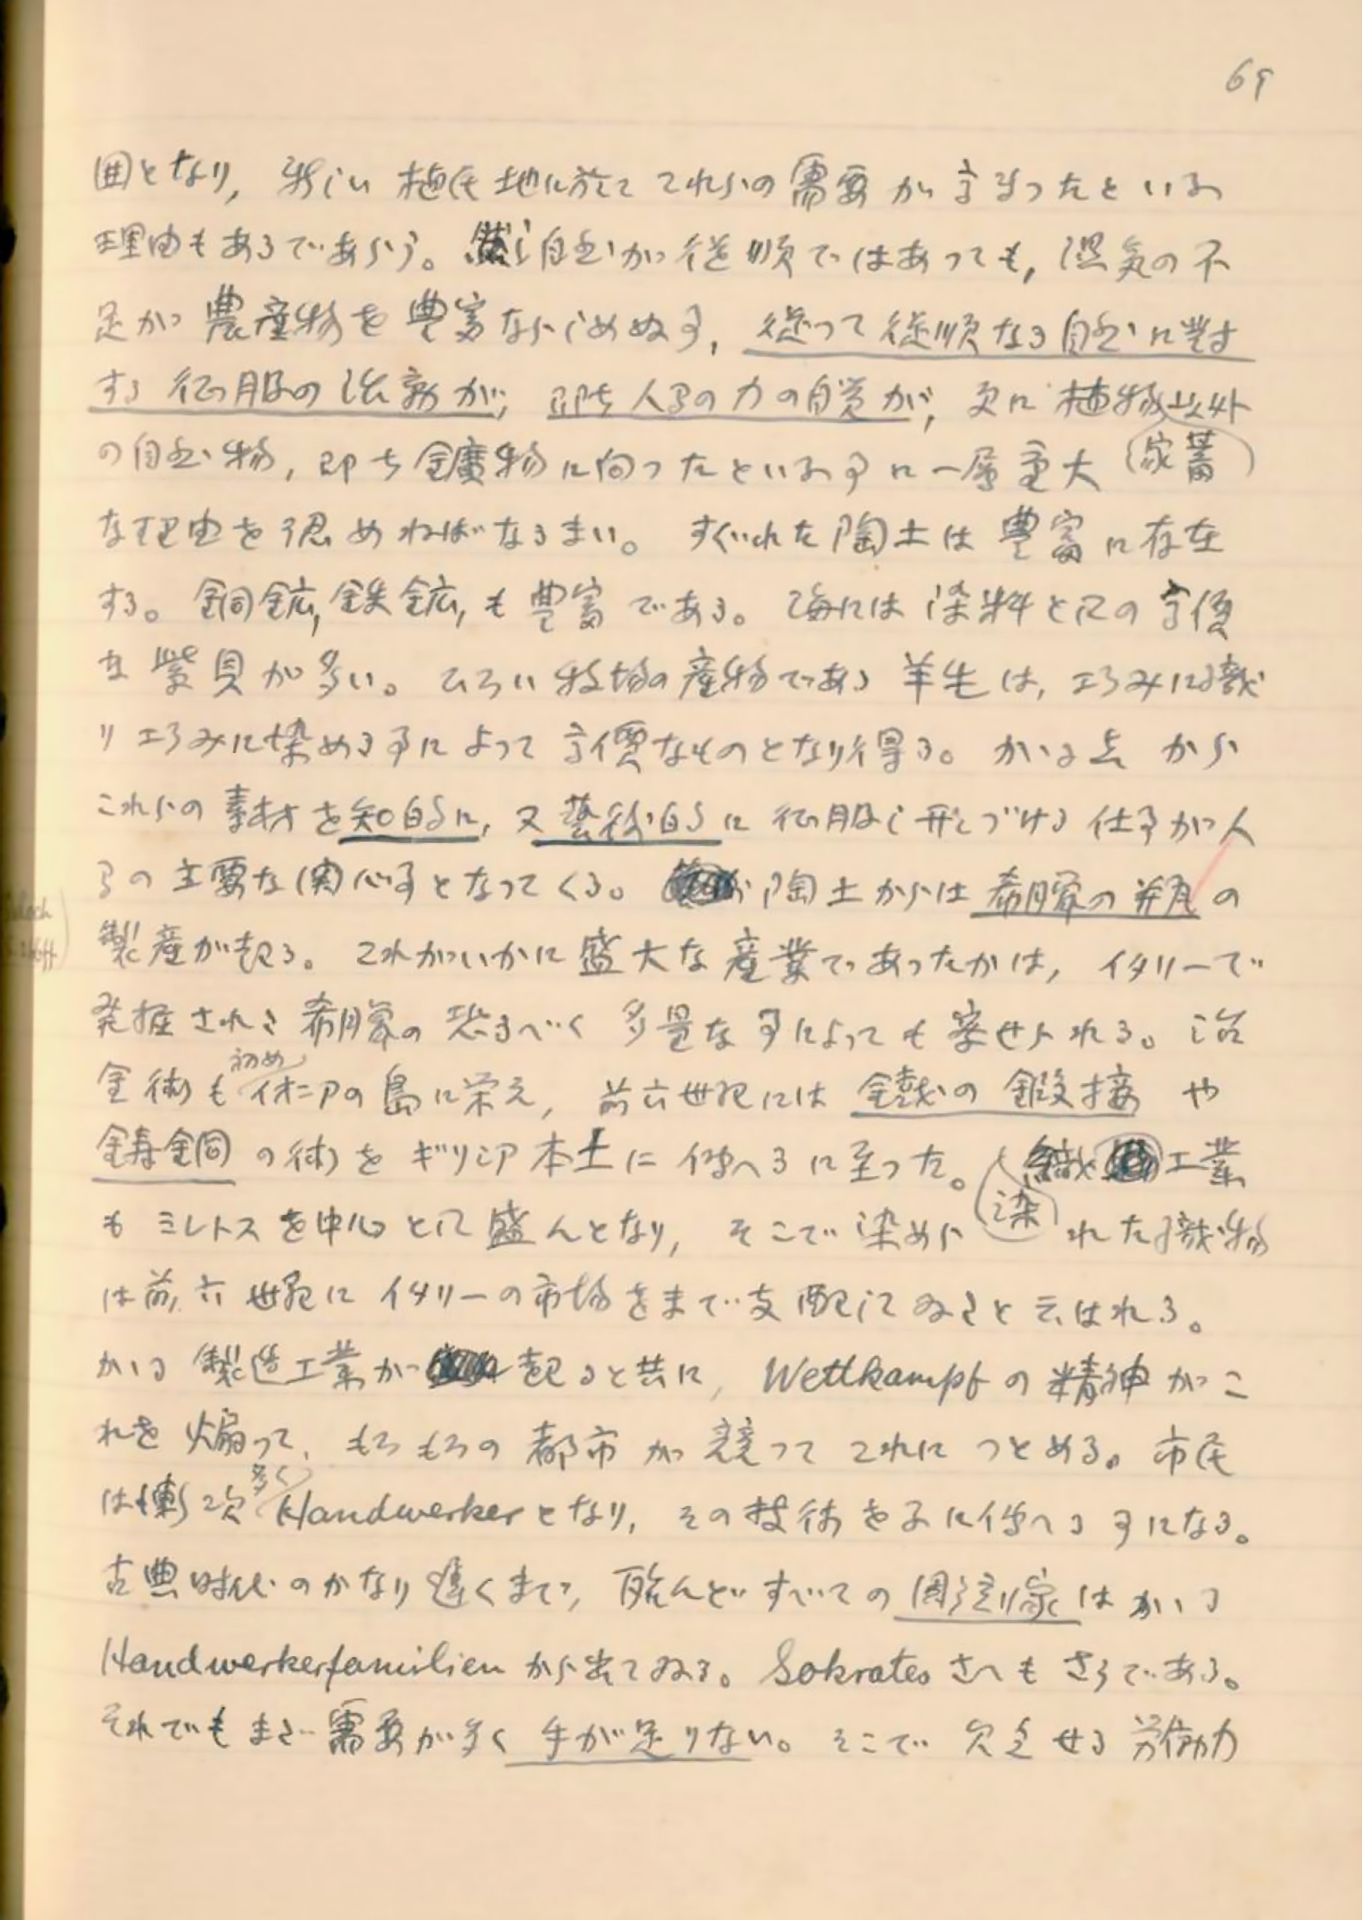 69
囲となり、新しい植民地に於てこれらの需要が高まったといふ
理由もあるであらう。然し自然が従順ではあっても、湿気の不
足が農産物を豊富ならしめぬ事、従って従順なる自然に対
する征服の活動が、即ち人間の力の自覚が、更に植物以外
の自然物、即ち鑛物に向ったといふ事に一層重大(家蓄)
な理由を認めねばなるまい。すぐれた陶土は豊富に存在
する。銅鉱,鉄鉱,も豊富である。海には染料としての高価
な紫貝が多い。ひろい牧場の産物である羊毛は、巧みに織
り巧みに染める事によって高價なものとなり得る。かゝる点から
これらの素材を知的に、又藝術的に征服し形づける仕事が人
間の主要な関心事となってくる。陶土からは希臘の瓶の
製産が起る。これがいかに盛大な産業であったかは、イタリーで
発掘されし希臘の恐るべく多量な事によっても察せられる。冶
金術も初めイオニアの島に栄え、前六世紀には金銭の鍛接や
鋳銅の術をギリシア本土に伝へるに至った。織染工業
もミレトスを中心として盛んとなり、そこで染められた織物
は前六世紀にイタリーの市場をまで支配してゐたと云はれる。
かゝる製造工業が起ると共に、Wettkampfの精神がこ
れを煽って、もろもろの都市が競ってこれにつとめる。市民
は漸次多くHandwerkerとなり、その技術を子に伝へる事になる。
古典時代のかなり遅くまで、殆んどすべての彫刻家はかゝる
Handwerkerfamilienから出てゐる。Sokratesさへもさうである。
それでもまだ需要が多く手が足りない。そこで欠乏せる労働力